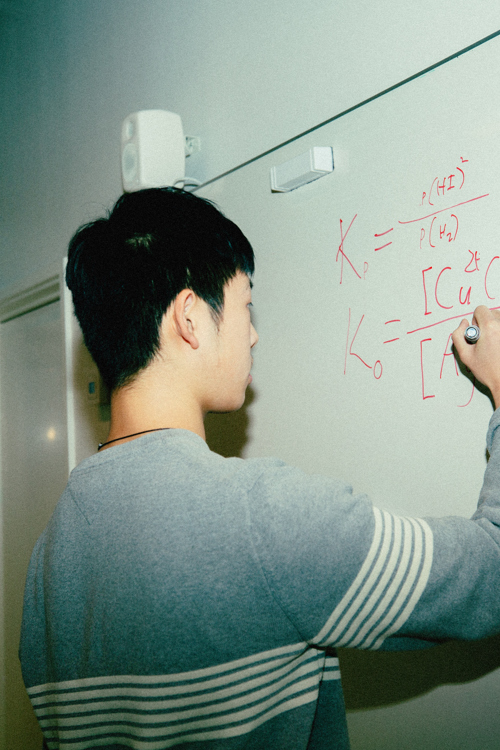 Kₚ = p(HI)² / p(H₂)
K₀ = [Cu²⁺ / [A